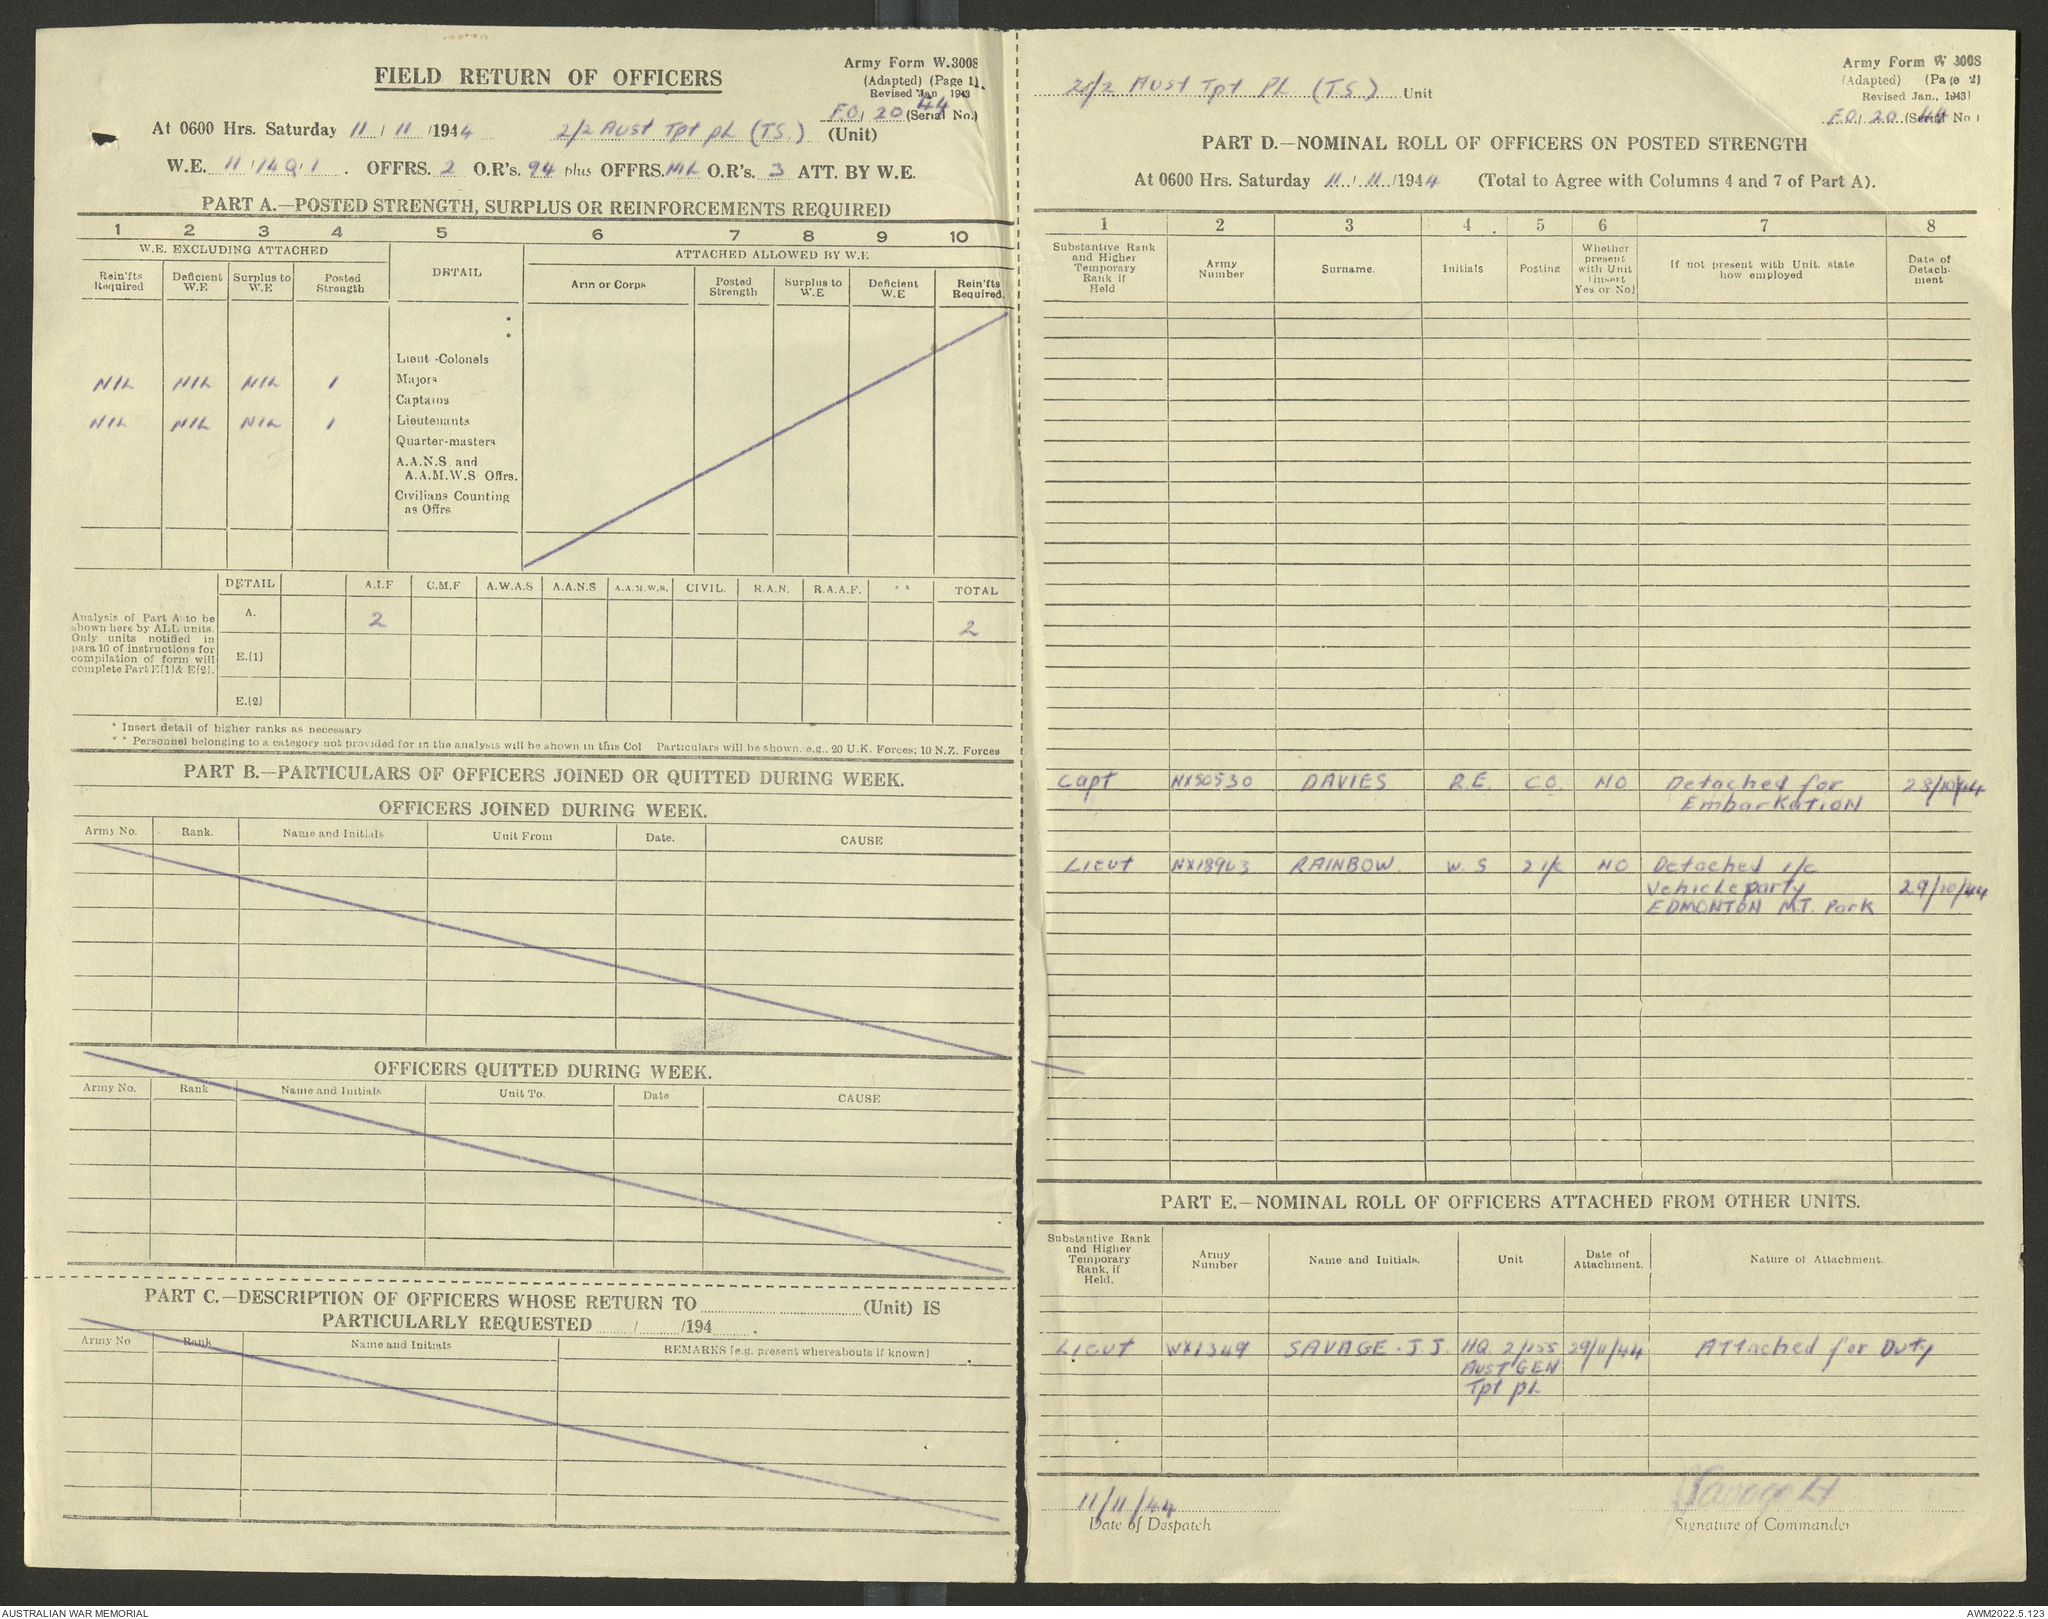 Army Form W.3008
FIELD RETURN OF OFFICERS
(Adapted) (Page 1).
Revised Jan 1943
44
F.O. 20 (Serial No.)
At 0600 Hrs. Saturday 11 / 11 /1944 2/2 Aust Tpt PL (T.S.) (Unit)
W.E. 11 /140/1 . OFFRS. 2 O.R's. 94 plus OFFRS. NIL O.R's. 3 ATT. BY W.E.
PART A.—POSTED STRENGTH, SURPLUS OR REINFORCEMENTS REQUIRED
1 2 3 4 5 6 7 8 9 10
W.E. EXCLUDING ATTACHED DETAIL ATTACHED ALLOWED BY W.E
Rein'fts Required Deficient W.E Surplus to W.E Posted Strength Arm or Corps Posted Strength Surplus to W.E Deficient W.E Rein'fts Required.
*
*
Lieut -Colonels
NIL NIL NIL 1 Majors
Captains
NIL NIL NIL 1 Lieutenants
Quarter-masters
A.A.N.S. and
A.A.M.W.S Offrs.
Civilians Counting
as Offrs
DETAIL A.I.F C.M.F A.W.A.S A.A.N.S A.A.M.W.S. CIVIL. R.A.N. R.A.A.F. ** TOTAL
Analysis of Part A to be
shown here by ALL units.
Only units notified in
para 10 of instructions for
compilation of form will
complete Part E[1]& E[2].
A. 2 2
E.[1]
E.[2]
* Insert detail of higher ranks as necessary
** Personnel belonging to a category not provided for in the analysis will be shown in this Col Particulars will be shown. e.g., 20 U.K. Forces; 10 N.Z. Forces
PART B.—PARTICULARS OF OFFICERS JOINED OR QUITTED DURING WEEK.
OFFICERS JOINED DURING WEEK.
Army No. Rank. Name and Initials Unit From Date. CAUSE
OFFICERS QUITTED DURING WEEK.
Army No. Rank Name and Initials Unit To. Date CAUSE
PART C.—DESCRIPTION OF OFFICERS WHOSE RETURN TO (Unit) IS
PARTICULARLY REQUESTED / /194 .
Army No Rank Name and Initials REMARKS [e.g. present whereabouts if known]
Army Form W 3008
(Adapted) (Page 2)
Revised Jan., 1943)
2/2 Aust Tpt PL (T.S.) Unit
F.O. 20 44 (Serial No )
PART D.—NOMINAL ROLL OF OFFICERS ON POSTED STRENGTH
At 0600 Hrs. Saturday 11 / 11 /1944 (Total to Agree with Columns 4 and 7 of Part A).
1 2 3 4 5 6 7 8
Substantive Rank and Higher Temporary Rank if Held Army Number Surname. Initials Posting Whether present with Unit [insert Yes or No] If not present with Unit. state how employed Date of Detachment
Capt NX50530 DAVIES R.E. C.O. NO Detached for 28/10/44
EmbarkatioN
Lieut NX18963 RAINBOW. W.S 2 i/c NO Detached i/c
Vehicle party 29/10/44
EDMONTON M.T. Park
PART E.—NOMINAL ROLL OF OFFICERS ATTACHED FROM OTHER UNITS.
Substantive Rank and Higher Temporary Rank, if Held. Army Number Name and Initials. Unit Date of Attachment. Nature of Attachment.
Lieut WX1349 SAVAGE. J.J. HQ 2/155 29/11/44 Attached for Duty
AUST GEN
Tpt pL
11/11/44
Date of Despatch Signature of Commander
AUSTRALIAN WAR MEMORIAL AWM2022.5.123